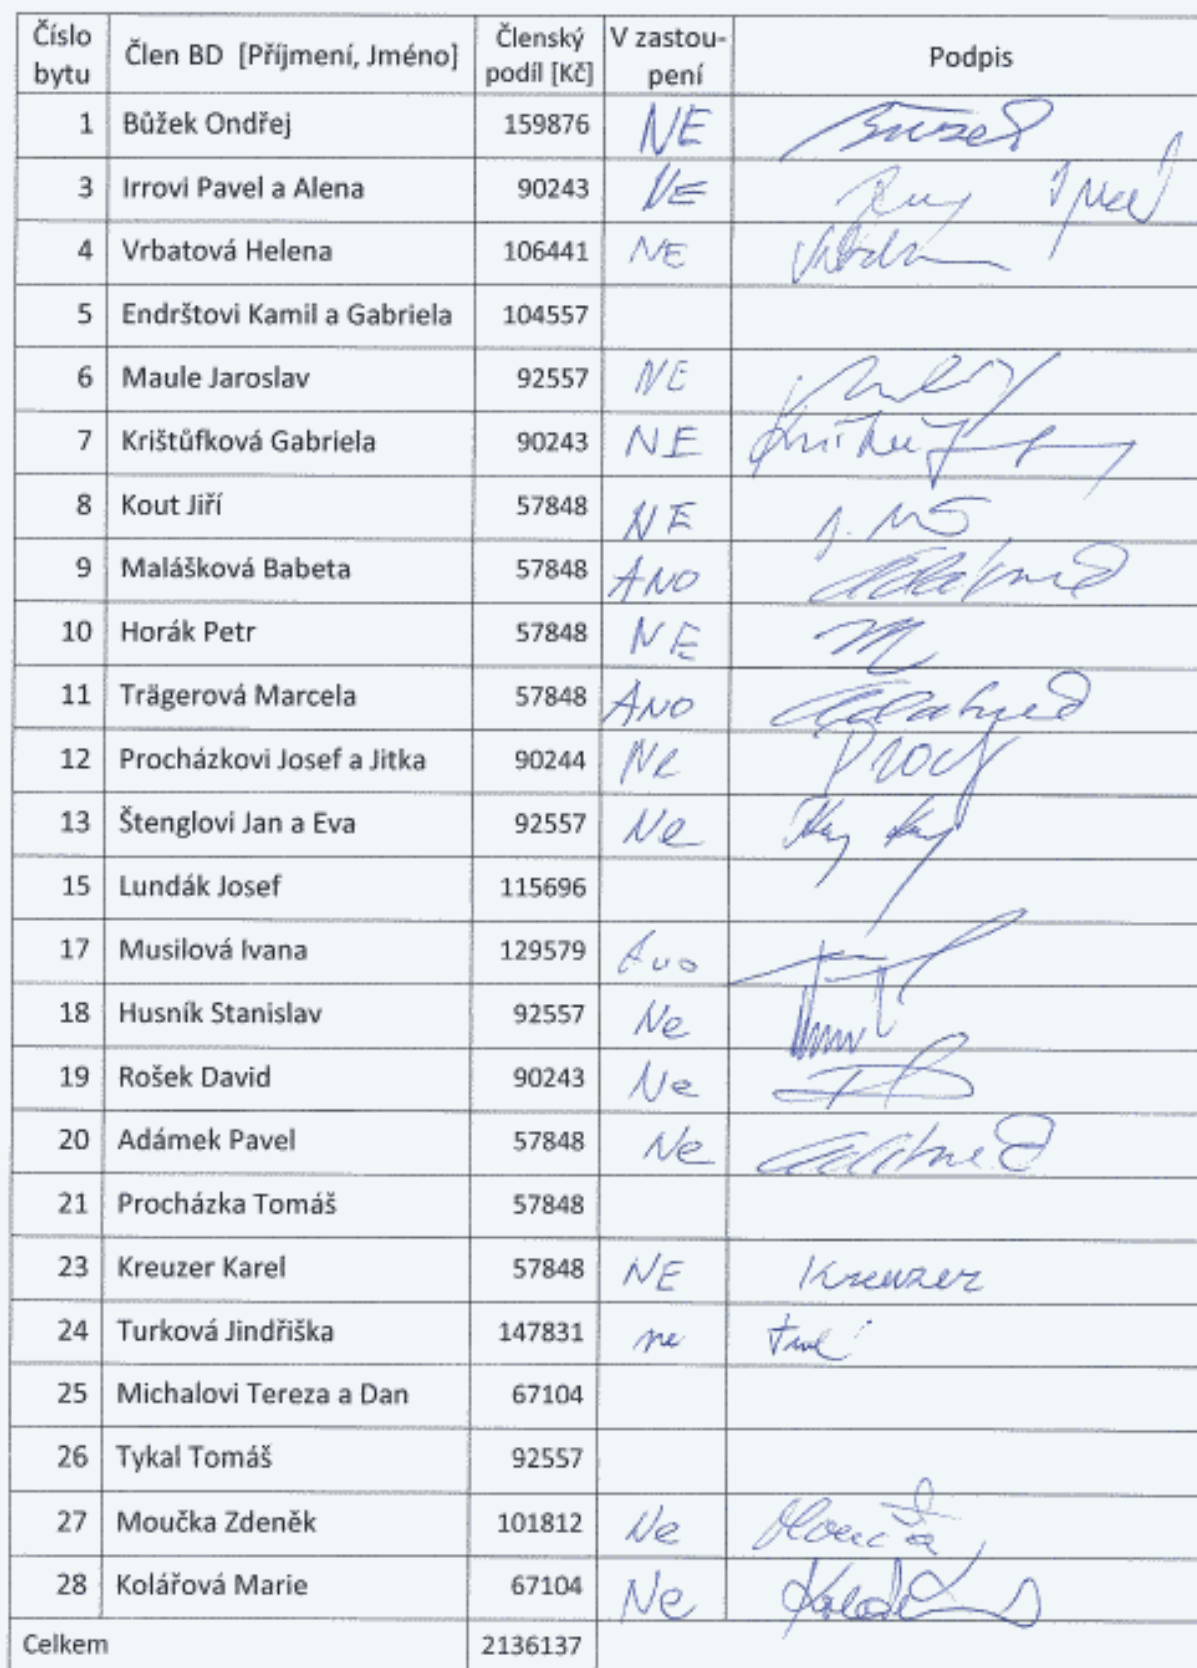 Číslo bytu Člen BD [Příjmení, Jméno] Členský podíl [Kč] V zastou-pení Podpis
1 Bůžek Ondřej 159876 NE Bůžek
3 Irrovi Pavel a Alena 90243 NE
4 Vrbatová Helena 106441 NE
5 Endrštovi Kamil a Gabriela 104557
6 Maule Jaroslav 92557 NE
7 Krištůfková Gabriela 90243 NE
8 Kout Jiří 57848 NE
9 Malášková Babeta 57848 ANO
10 Horák Petr 57848 NE
11 Trägerová Marcela 57848 ANO
12 Procházkovi Josef a Jitka 90244 Ne
13 Štenglovi Jan a Eva 92557 Ne
15 Lundák Josef 115696
17 Musilová Ivana 129579 Ano
18 Husník Stanislav 92557 Ne
19 Rošek David 90243 Ne
20 Adámek Pavel 57848 Ne
21 Procházka Tomáš 57848
23 Kreuzer Karel 57848 NE Kreuzer
24 Turková Jindřiška 147831 ne
25 Michalovi Tereza a Dan 67104
26 Tykal Tomáš 92557
27 Moučka Zdeněk 101812 Ne Moučka
28 Kolářová Marie 67104 Ne
Celkem 2136137